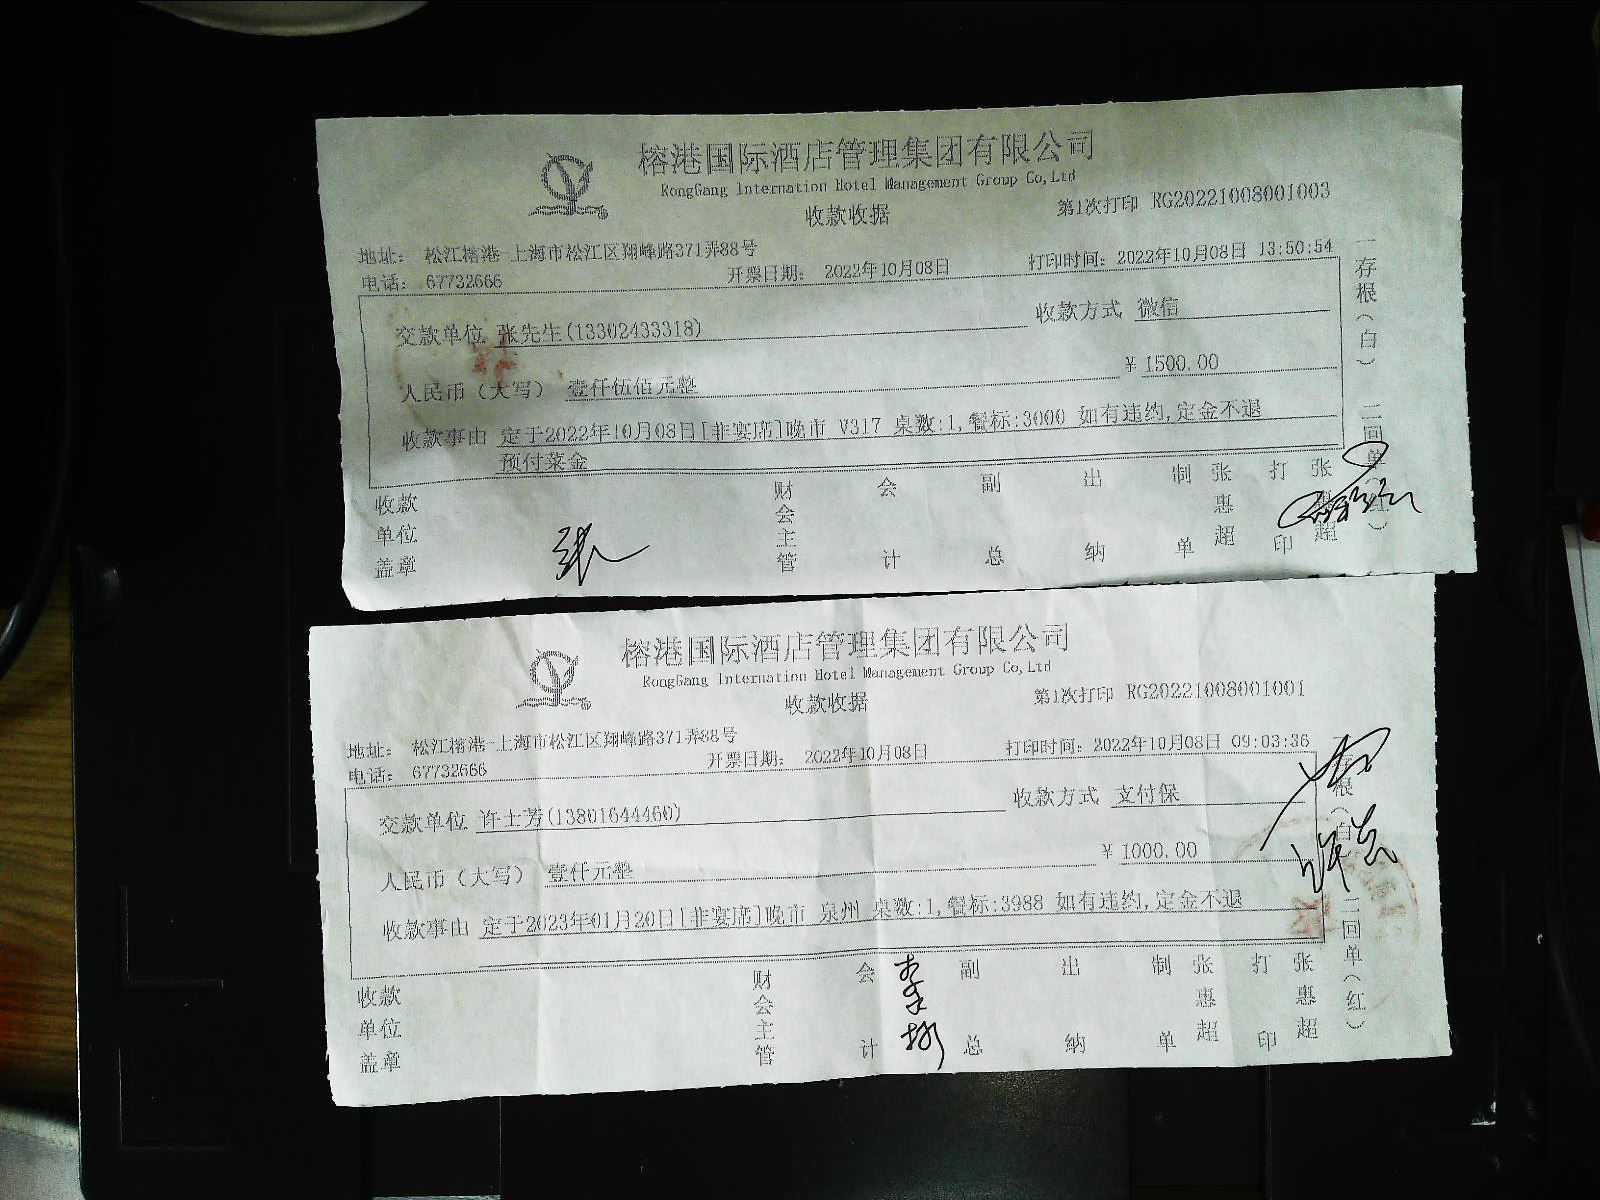 榕港国际酒店管理集团有限公司
RongGang Internation Hotel Management Group Co,Ltd
收款收据
第1次打印 RG20221008001003
地址： 松江榕港-上海市松江区翔峰路371弄88号
电话： 67732666 开票日期： 2022年10月08日 打印时间：2022年10月08日 13:50:54
交款单位 张先生(13302433318) 收款方式 微信
人民币（大写） 壹仟伍佰元整 ￥1500.00
收款事由 定于2022年10月08日[非宴席]晚市 V317 桌数:1,餐标:3000 如有违约,定金不退
预付菜金
收款单位盖章 财会主管 会计 副总 出纳 制单 张惠超 打印 张惠超
张
一存根（白） 二回单（红）
榕港国际酒店管理集团有限公司
RongGang Internation Hotel Management Group Co,Ltd
收款收据
第1次打印 RG20221008001001
地址： 松江榕港-上海市松江区翔峰路371弄88号
电话： 67732666 开票日期： 2022年10月08日 打印时间：2022年10月08日 09:03:36
交款单位 许士芳(13801644460) 收款方式 支付保
人民币（大写） 壹仟元整 ￥1000.00
收款事由 定于2023年01月20日[非宴席]晚市 泉州 桌数:1,餐标:3988 如有违约,定金不退
收款单位盖章 财会主管 会计 副总 出纳 制单 张惠超 打印 张惠超
一存根（白） 二回单（红）